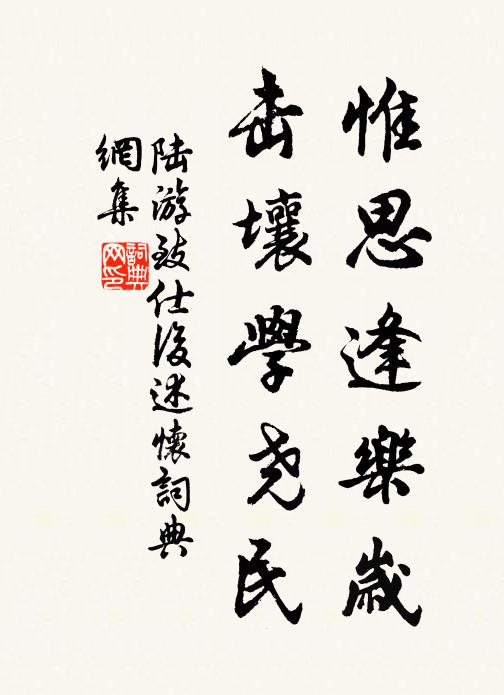 惟思逢樂歲
击壤學尧民
陆游致仕後述懷詞典
網集
詞典网印